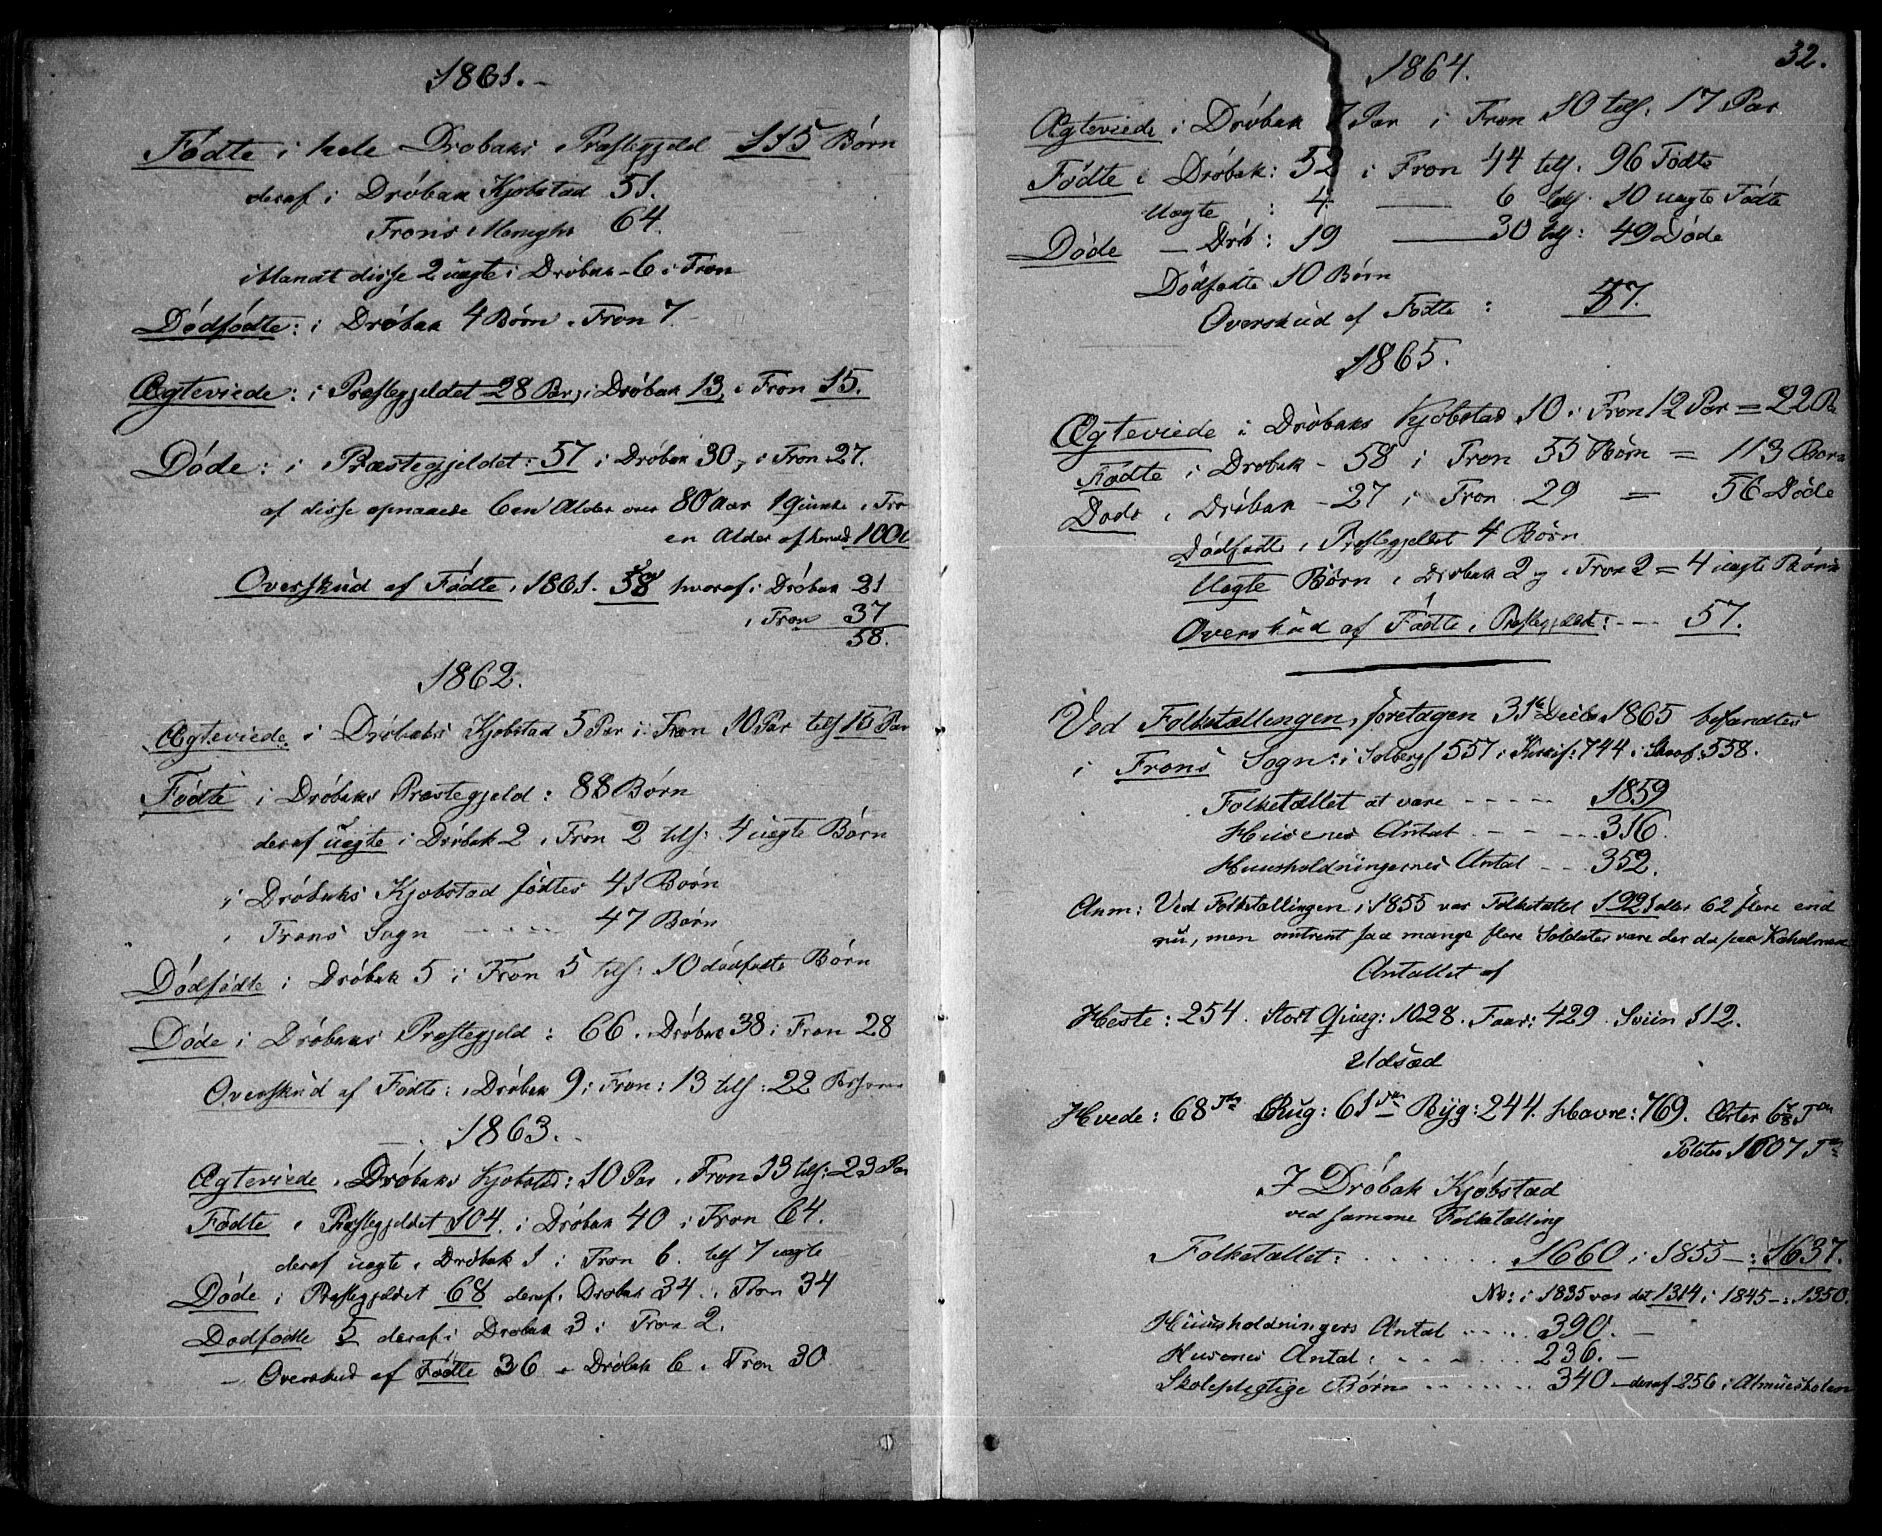 1861.-
Fødte i hele Drøbaks Præstegjeld 115 Børn
deraf i Drøbak Kjøbstad 51.
Frons Menighed 64.
iblandt disse 2 uægte i Drøbak - 6 i Fron
Dødfødte: i Drøbak 4 Børn i Fron 7.
Ægteviede: i Præstegjeldet 28 Par, i Drøbak 13, i Fron 15.
Døde: i Præstegjeldet: 57 i Drøbak 30, i Fron 27.
af disse opnaaede 6 en Alder over 80 Aar 1 Qvinde i Fro
en Alder af hened 100
Overskud af Fødte i 1861. 58 hvoraf i Drøbak 21
i Fron 37
58.
1862.
Ægteviede i Drøbaks Kjøbstad 5 Par i Fron 10 Par tils 15 Par
Fødte i Drøbaks Præstegjeld: 88 Børn
deraf uægte i Drøbak 2 i Fron 2 tils: 4 uægte Børn
i Drøbaks Kjøbstad fødtes 41 Børn
i Frons Sogn - - - - 47 Børn
Dødfødte i Drøbak 5 i Fron 5 tils: 10 dødfødte Børn
Døde i Drøbaks Præstegjeld: 66. Drøbak 38 i Fron 28
Overskud af Fødte: i Drøbak 9 i Fron: 13 tils: 22
1863.
Ægteviede i Drøbaks Kjøbstad: 10 Par i Fron 13 tils: 23 Par
Fødte i Præstegjeldet 104. i Drøbak 40 i Fron 64.
deraf uægte i Drøbak 1 i Fron 6. tils 7 uægte
Døde i Præstegjeldet 68 deraf i Drøbak 34 i Fron 34
Dødfødte 5 deraf i Drøbak 3 i Fron 2.
- Overskud af Fødte 36 - Drøbak 6 i Fron 30
32.
1864.
Ægteviede i Drøbak 7 Par i Fron 10 tils. 17 Par
Fødte i Drøbak: 52 i Fron 44 tils. 96 Fødte
Uægte : 4 — 6 tils. 10 uægte Fødte
Døde - Drøb: 19 — 30 tils: 49 Døde
Dødfødte 10 Børn
Overskud af Fødte : 37.
1865.
Ægteviede i Drøbaks Kjøbstad 10 i Fron 12 Par = 22 Pa
Fødte i Drøbak - 58 i Fron 55 Børn = 113 Børn
Døde i Drøbak - 27 i Fron 29 = 56 Døde
Dødfødte i Præstegjeldet 4 Børn
Uægte Børn i Drøbak 2 og i Fron 2 = 4 uægte Børn
Overskud af Fødte i Præstegjeldet: - - - 57.
Ved Folketællingen, foretagen 31te Decbr 1865 befandtes
i Frons Sogn: i Solbergf 557 i 744 i 558.
Folketallet at være - - - - - 1859
Husenes Antal - - - - 316
Huusholdningernes Antal - - 352.
Anm: Ved Folketællingen i 1855 var Folketallet 1921 eller 62 flere end
nu, men omtrent saa mange flere Soldater vare der da paa Kaholmen
Antallet af
Heste: 254. Stort Qvæg: 1028. Faar: 429. Sviin 112.
Udsæd
Hvede: 68 Tdr Rug: 61 Tdr Byg: 244. Havre: 769. Ærter 6 Tdr
Poteter 1607 Tdr
I Drøbak Kjøbstad
ved samme Folketælling
Folketallet: . . . . . . . 1660 i 1855 - : 1637.
Nb: i 1835 var det 1314 i 1845 - : 1350.
Huusholdningers Antal . . . . . 390. -
Husenes Antal: . . . . . . 236. -
Skolepligtige Børn . . . . . . 340 - deraf 256 i Almueskolen